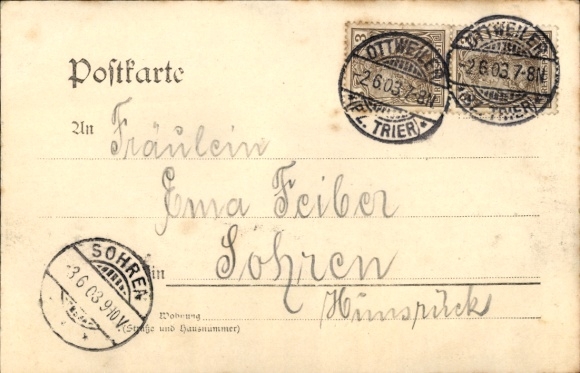 3
OTTWEILER
2.6.03.7-8N
*(BZ. TRIER)*
OTTWEILER
2.6.03.7-8N
*(BZ. TRIER)*
Postkarte
An Fräulein
Ema Feiber
in Sohren
Hunsrück
Wohnung
(Straße und Hausnummer)
SOHREN
3.6.03.9-10V.